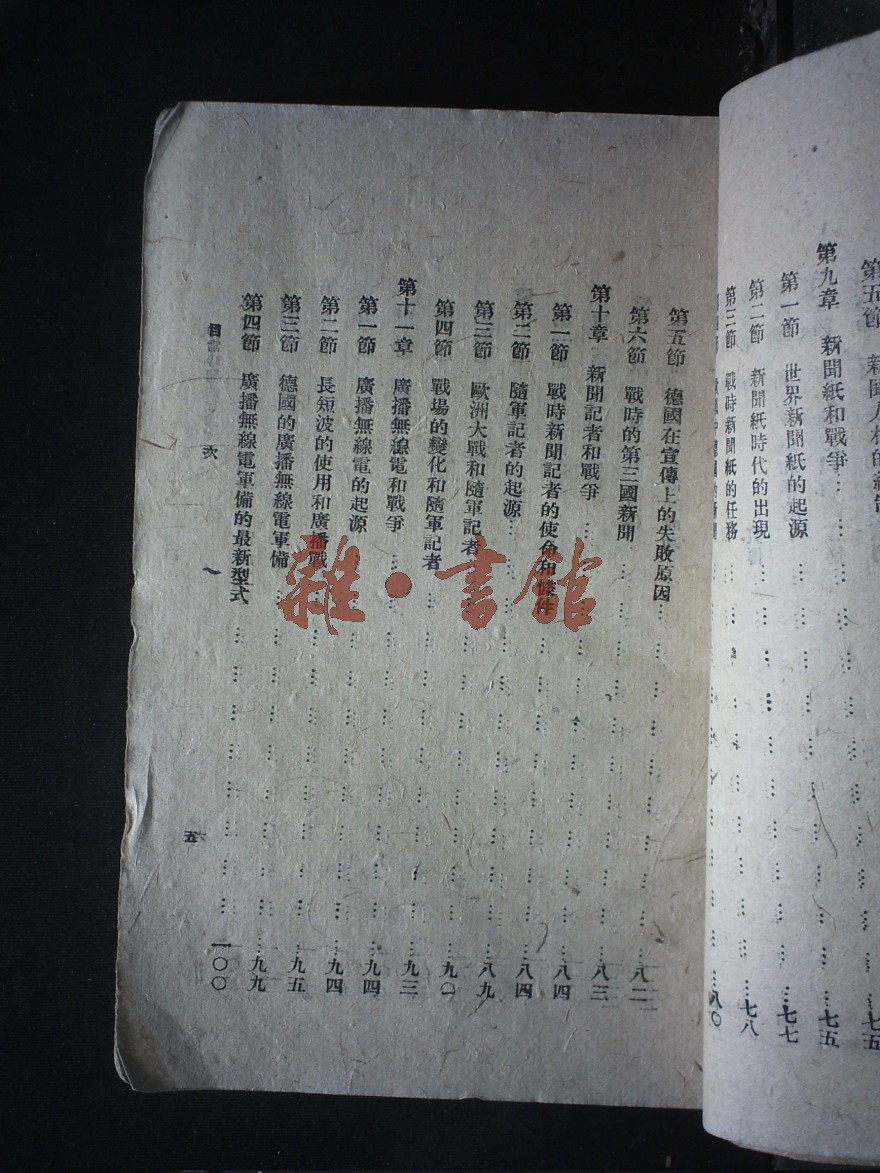 第五節 新聞人材的 … 七五
第九章 新聞紙和戰爭 … 七五
第一節 世界新聞紙的起源 … 七七
第二節 新聞紙時代的出現 … 七八
第三節 戰時新聞紙的任務 … 八〇
第五節 德國在宣傳上的失敗原因 … 八二
第六節 戰時的第三國新聞 … 八三
第十章 新聞記者和戰爭 … 八四
第一節 戰時新聞記者的使命和條件 … 八四
第二節 隨軍記者的起源 … 八九
第三節 歐洲大戰和隨軍記者 … 九〇
第四節 戰場的變化和隨軍記者 … 九三
第十一章 廣播無線電和戰爭 … 九四
第一節 廣播無線電的起源 … 九四
第二節 長短波的使用和廣播戰 … 九五
第三節 德國的廣播無線電軍備 … 九九
第四節 廣播無線電軍備的最新型式 … 一〇〇
目 次
五
雜·書館